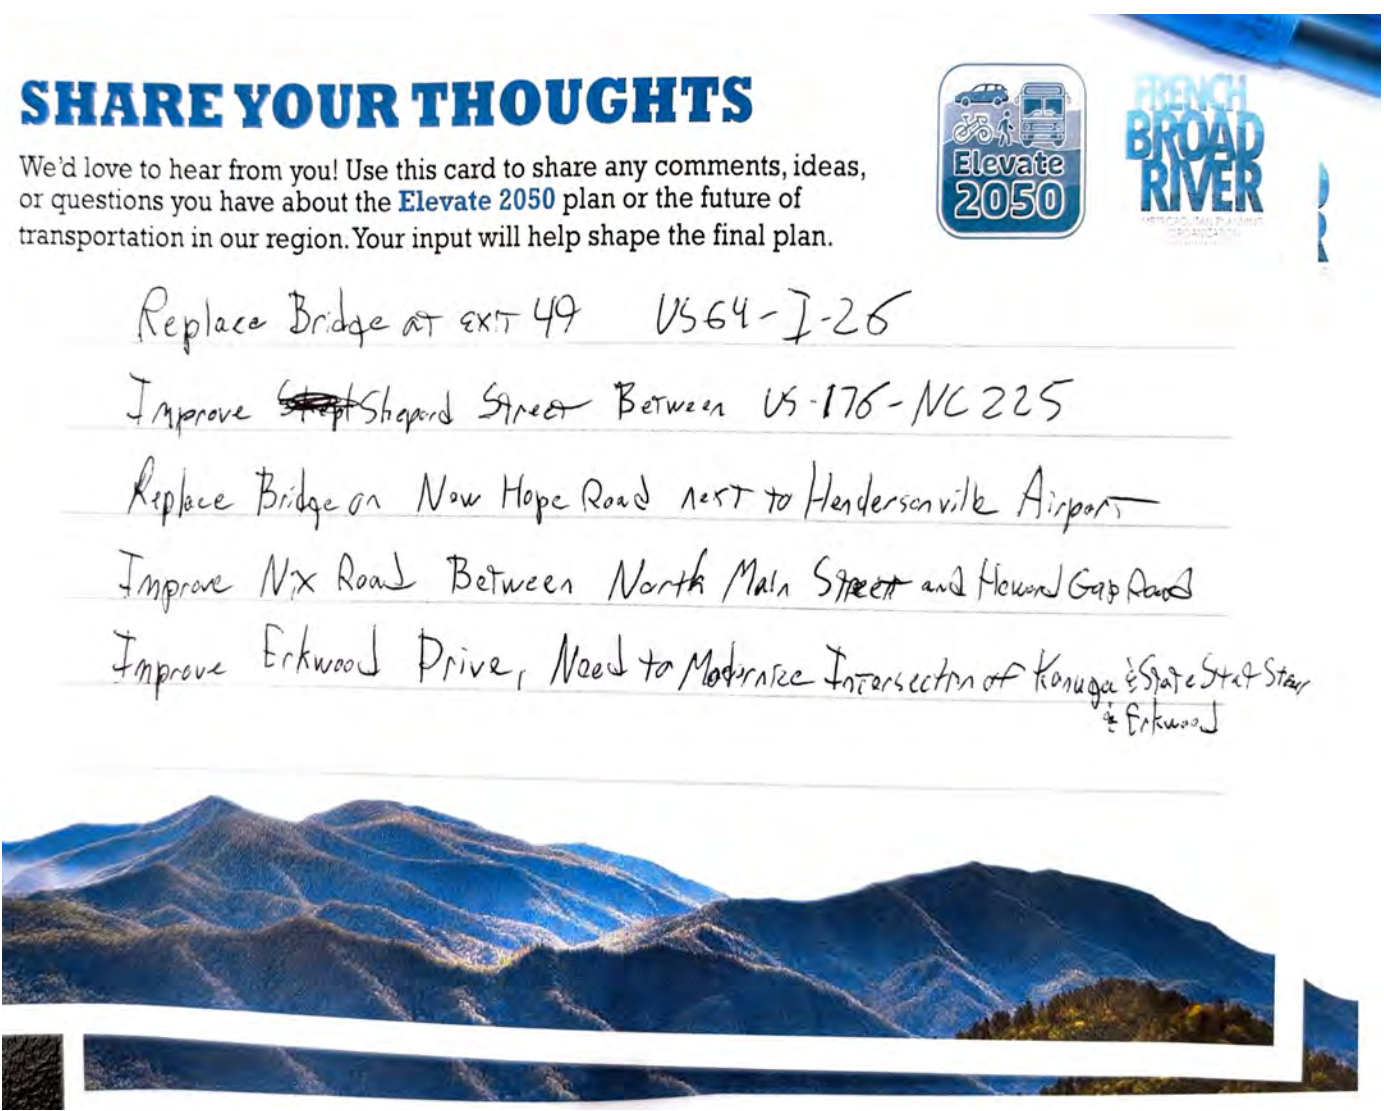 SHARE YOUR THOUGHTS
We'd love to hear from you! Use this card to share any comments, ideas,
or questions you have about the Elevate 2050 plan or the future of
transportation in our region. Your input will help shape the final plan.
Elevate
2050
FRENCH
BROAD
RIVER
METROPOLITAN PLANNING
ORGANIZATION
Replace Bridge at exit 49 US64-I-26
Improve Shepard Street Between US-176-NC225
Replace Bridge on New Hope Road next to Hendersonville Airport
Improve Nix Road Between North Main Street and Howard Gap Road
Improve Erkwood Drive, Need to Modernize Intersection of Kanuga & State
& Erkwood